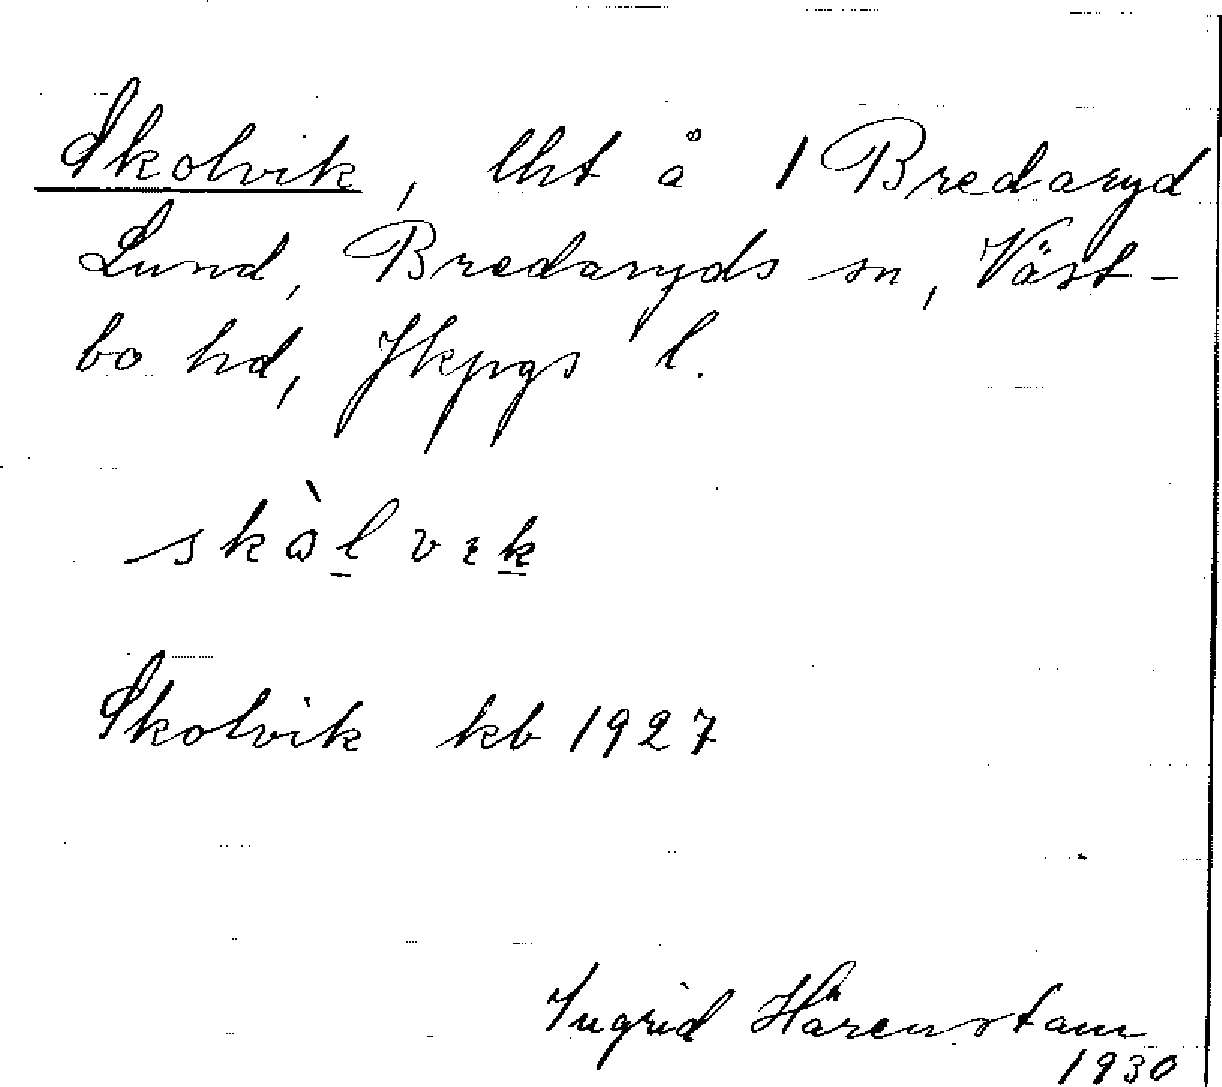 Skolvik, lht å 1 Bredaryd
Lund, Bredaryds sn, Väst-
bo hd, Jkpgs l.
skò̀lvɛk
Skolvik kb 1927
Ingrid Härenstam
1930